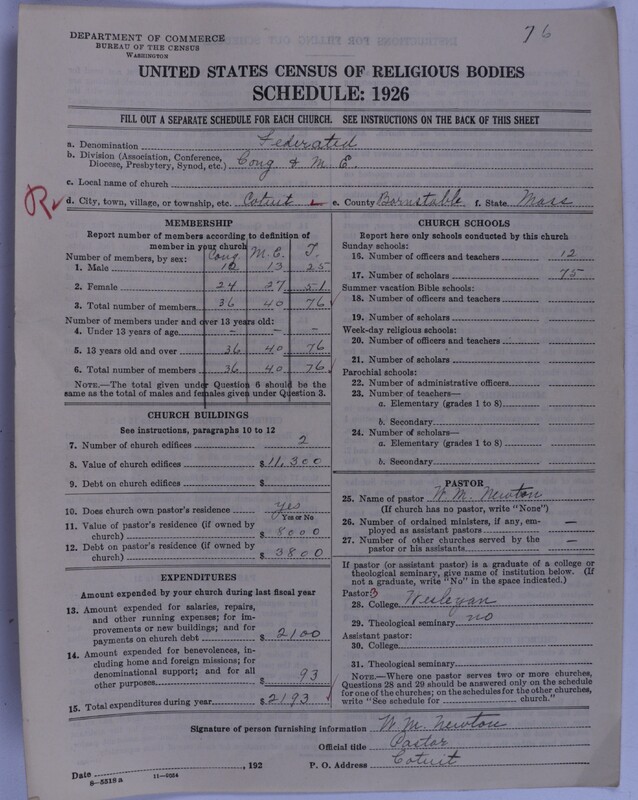 76
DEPARTMENT OF COMMERCE
BUREAU OF THE CENSUS
WASHINGTON
UNITED STATES CENSUS OF RELIGIOUS BODIES
SCHEDULE: 1926
FILL OUT A SEPARATE SCHEDULE FOR EACH CHURCH. SEE INSTRUCTIONS ON THE BACK OF THIS SHEET
a. Denomination Federated
b. Division (Association, Conference,
Diocese, Presbytery, Synod, etc.) Cong & M. E.
c. Local name of church
R d. City, town, village, or township, etc. Cotuit e. County Barnstable f. State Mass
MEMBERSHIP
Report number of members according to definition of
member in your church
Number of members, by sex: Cong. M. E. T.
1. Male 12 13 25
2. Female 24 27 51
3. Total number of members 36 40 76
Number of members under and over 13 years old:
4. Under 13 years of age - - -
5. 13 years old and over 36 40 76
6. Total number of members 36 40 76
NOTE.—The total given under Question 6 should be the
same as the total of males and females given under Question 3.
CHURCH BUILDINGS
See instructions, paragraphs 10 to 12
7. Number of church edifices 2
8. Value of church edifices $ 11,300
9. Debt on church edifices $
10. Does church own pastor's residence yes
Yes or No
11. Value of pastor's residence (if owned by
church) $ 8000
12. Debt on pastor's residence (if owned by
church) $ 3800
EXPENDITURES
Amount expended by your church during last fiscal year
13. Amount expended for salaries, repairs,
and other running expenses; for im-
provements or new buildings; and for
payments on church debt $ 2100
14. Amount expended for benevolences, in-
cluding home and foreign missions; for
denominational support; and for all
other purposes $ 93
15. Total expenditures during year $ 2193
CHURCH SCHOOLS
Report here only schools conducted by this church
Sunday schools:
16. Number of officers and teachers 12
17. Number of scholars 75
Summer vacation Bible schools:
18. Number of officers and teachers
19. Number of scholars
Week-day religious schools:
20. Number of officers and teachers
21. Number of scholars
Parochial schools:
22. Number of administrative officers
23. Number of teachers—
a. Elementary (grades 1 to 8)
b. Secondary
24. Number of scholars—
a. Elementary (grades 1 to 8)
b. Secondary
PASTOR
25. Name of pastor W. M. Newton
(If church has no pastor, write "None")
26. Number of ordained ministers, if any, em-
ployed as assistant pastors —
27. Number of other churches served by the
pastor or his assistants —
If pastor (or assistant pastor) is a graduate of a college or
theological seminary, give name of institution below. (If
not a graduate, write "No" in the space indicated.)
Pastor: 3
28. College Wesleyan
29. Theological seminary no
Assistant pastor:
30. College
31. Theological seminary
NOTE.—Where one pastor serves two or more churches,
Questions 28 and 29 should be answered only on the schedule
for one of the churches; on the schedules for the other churches,
write "See schedule for church."
Signature of person furnishing information W. M. Newton
Official title Pastor
Date , 192 P. O. Address Cotuit
8-5318 a 11-9034